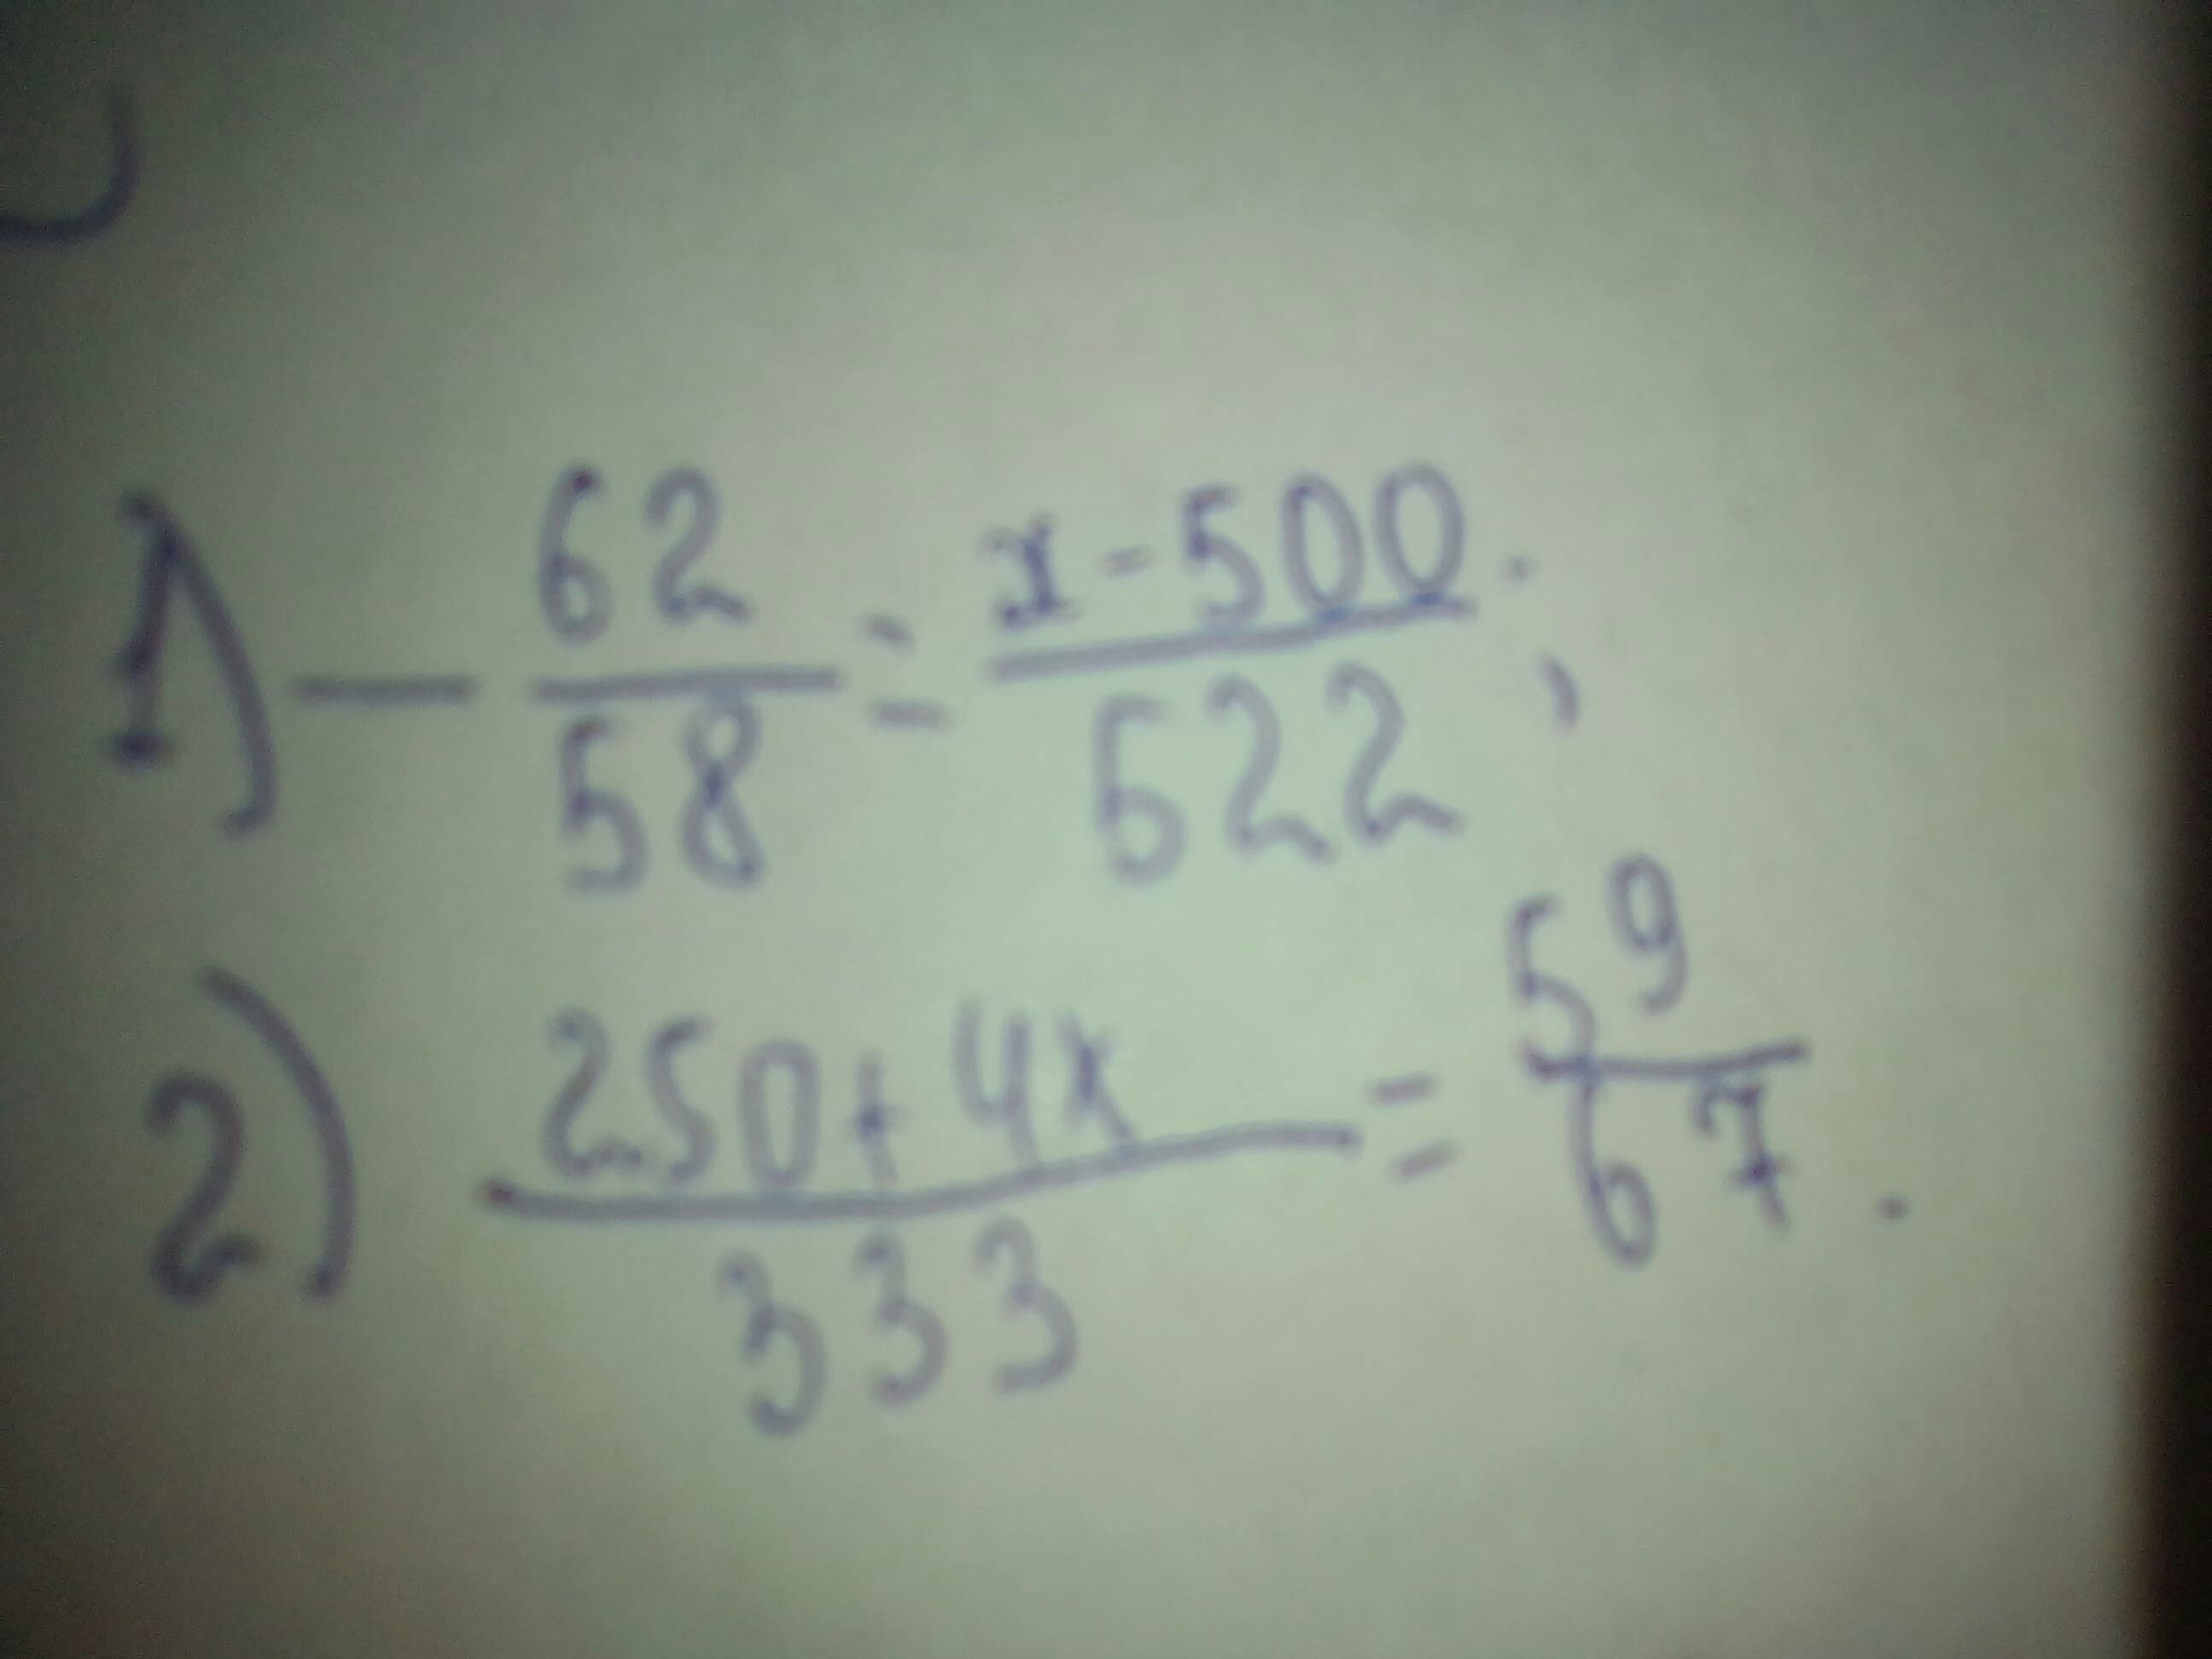 1) - 62/58 = x-500/522 ;
2) 250+4x/333 = 59/67 .